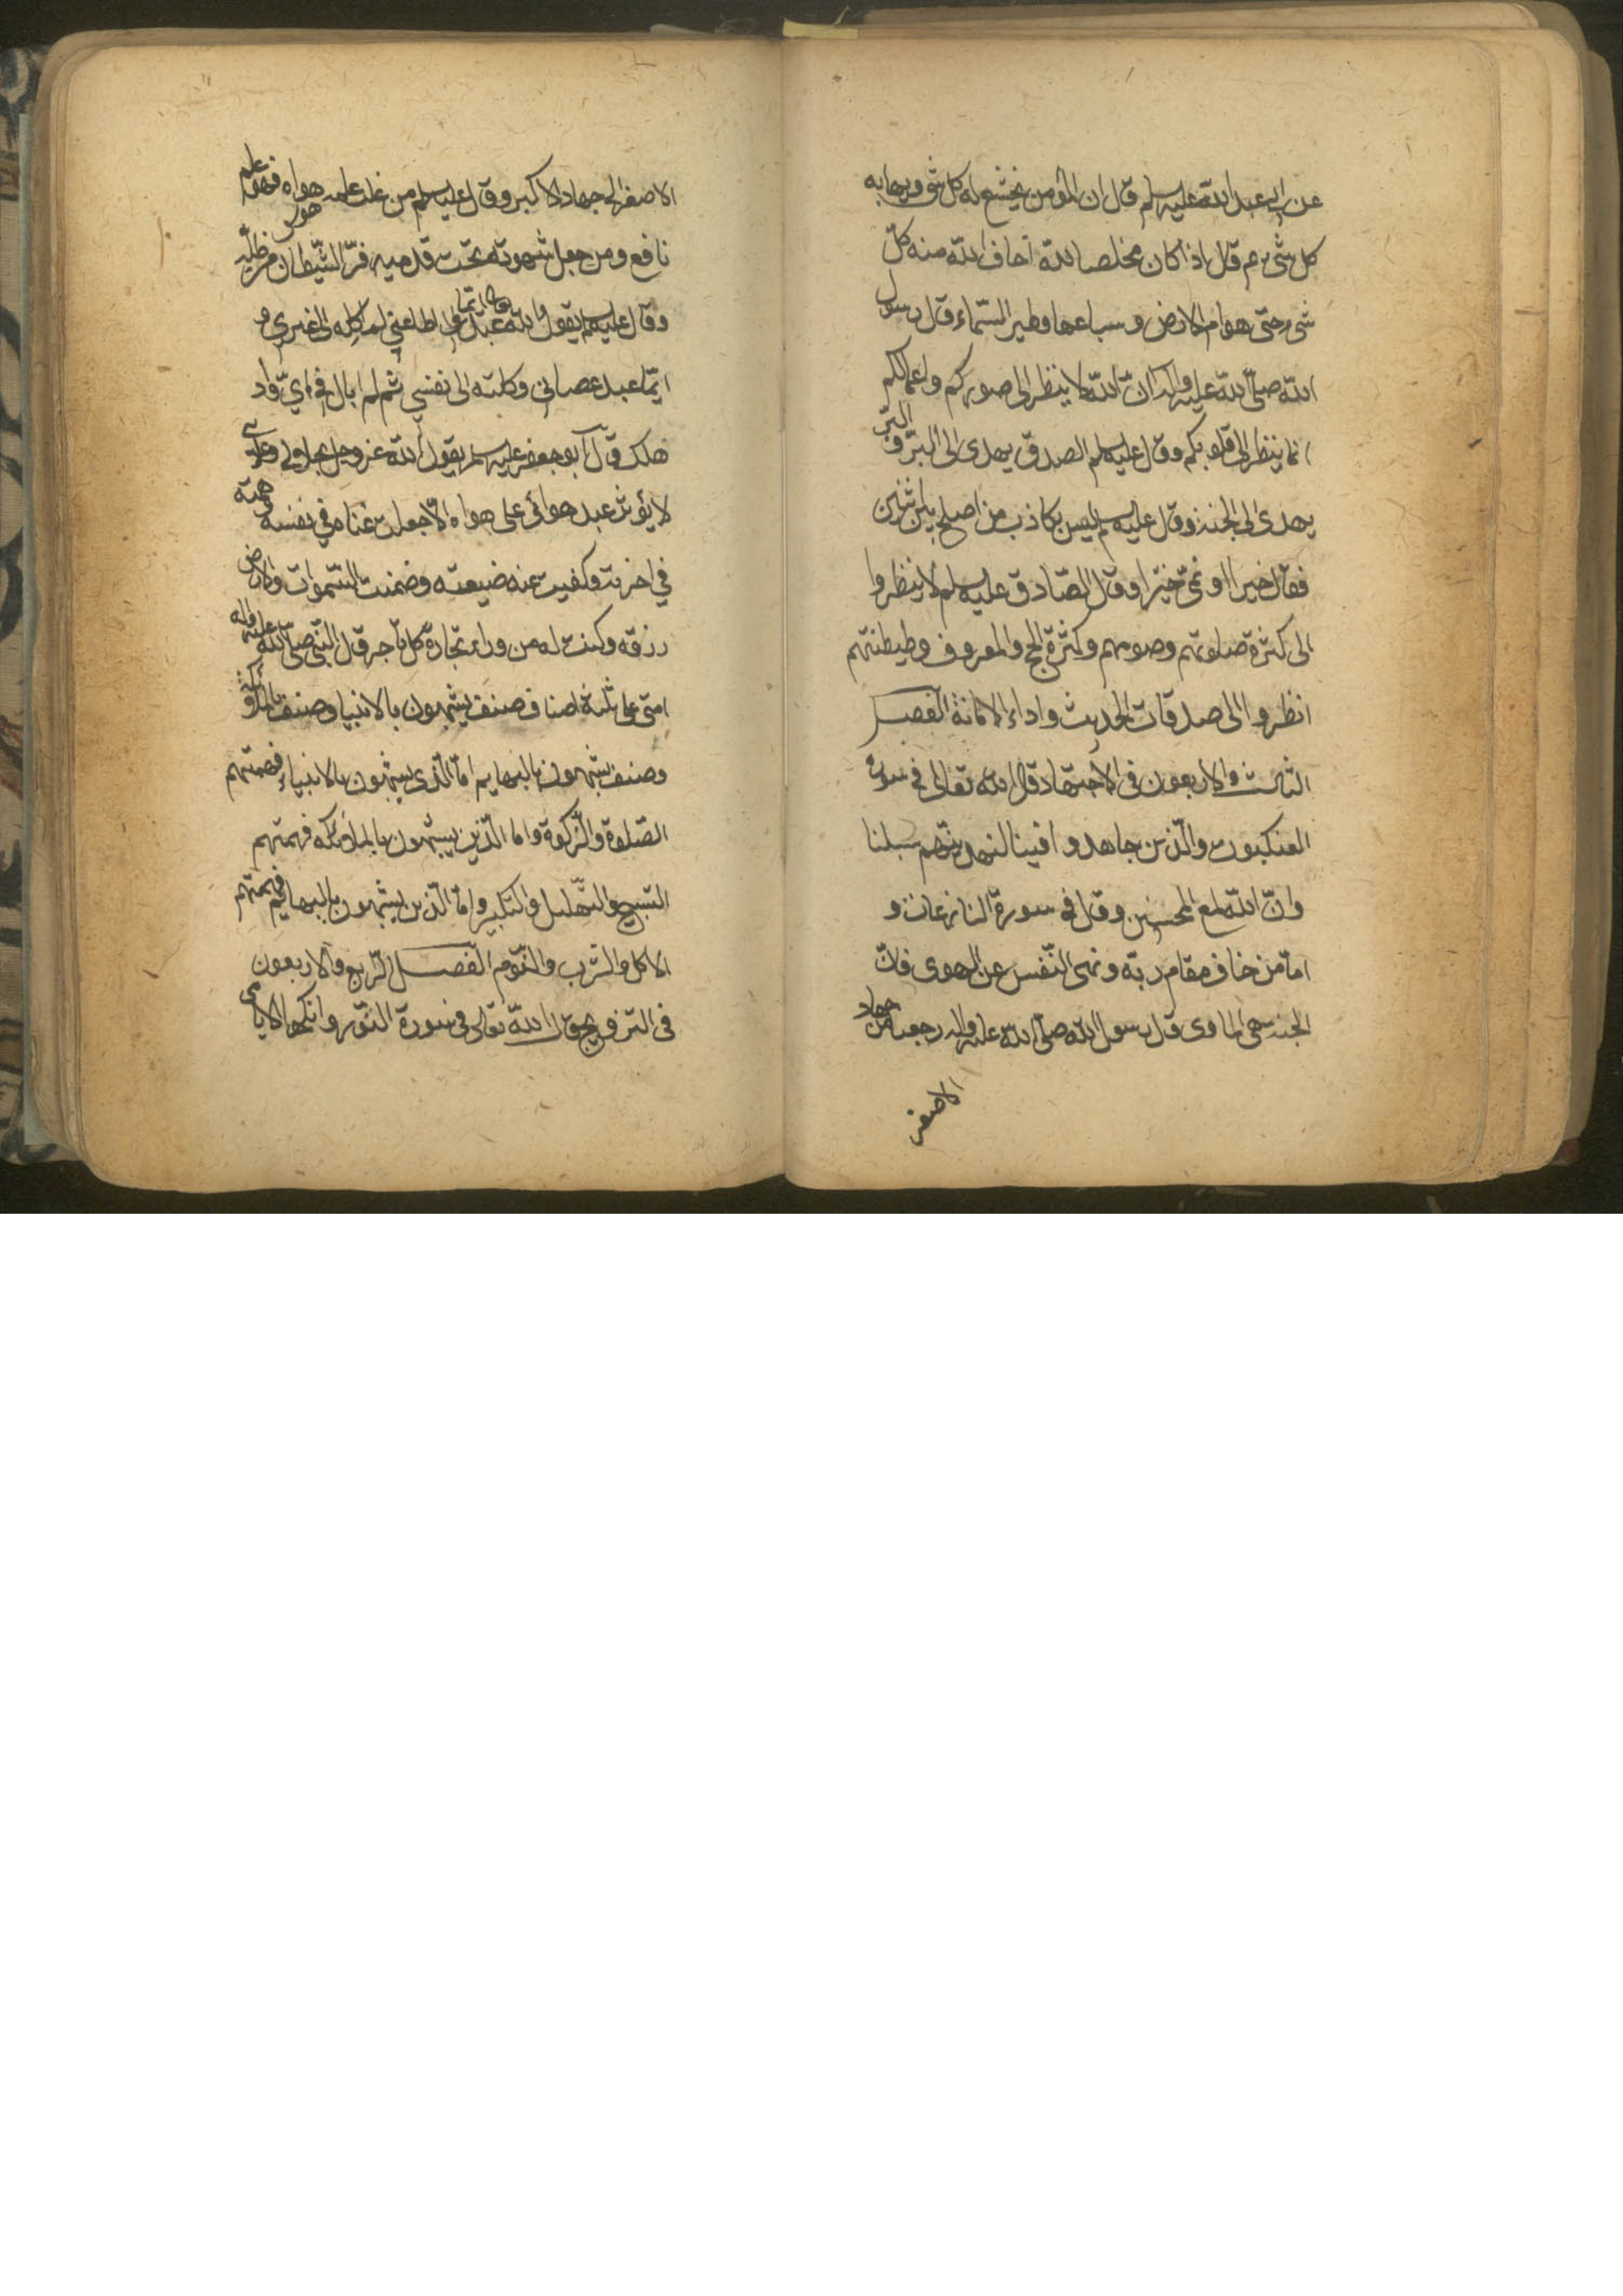 عن ابی عبد الله علیه سلم قال ان المؤمن یخشع له کل شی ویهابه
کل شی ثم قال اذا کان مخلصا لله اخاف الله منه کل
شی حتی هوام الارض وسباعها وطیر السماء قال رسول
الله صلی الله علیه واله ان الله لا ینظر الی صورکم واعمالکم
انما ینظر الی قلوبکم وقال علیه سلم الصدق یهدی الی البر و البر
یهدی الی الجنة وقال علیه سلم لیس بکاذب من اصلح بین اثنین
فقال خیرا او نمی خیرا وقال الصادق علیه سلم لا ینظروا
الی کثرة صلوتهم وصومهم وکثرة الحج والمعروف وطیطنتهم
انظروا الی صدقات الحدیث واداء الامانة الفصل
الثالث والاربعون فی الاجتهاد قال الله تعالی فی سورة
العنکبوت والذین جاهدوا فینا لنهدینهم سبلنا
وان الله لمع المحسنین وقال فی سورة النازعات و
اما من خاف مقام ربه ونهی النفس عن الهوی فان
الجنة هی الماوی قال رسول الله صلی الله علیه واله رجعنا من جهاد
الاصغر
الاصغر الی جهاد الاکبر وقال علیه سلم من غلب علمه هواه فهو علم
نافع ومن جعل شهوته تحت قدمیه فر الشیطان من ظله
وقال علیه سلم یقول الله ایما عبد اطاعنی لم اکله الی غیری و
ایما عبد عصانی وکلته الی نفسی ثم لم ابال فی ای واد
هلک قال ابو جعفر علیه سلم یقول الله عز وجل بجلالی وعزتی
لا یؤثر عبد هوائی علی هواه الا جعلت غناه فی نفسه وهمته
فی اخرته وکفیت عنه ضیعته وضمنت السموات والارض
رزقه وکنت له من وراء تجارة کل تاجر قال النبی صلی الله علیه واله
امتی علی ثلثة اصناف صنف یشبهون بالانبیا وصنف بالملائکة و
وصنف یشبهون بالبهایم اما الذی یشبهون بالانبیاء فهمتهم
الصلوة والزکوة واما الذین یشبهون بالملائکه فهمتهم
التسبیح والتهلیل والتکبیر واما الذین یشبهون بالبهایم فهمتهم
الاکل والشرب والنوم الفصل الرابع والاربعون
فی التزویج قال الله تعالی فی سورة النور وانکحوا الایامی